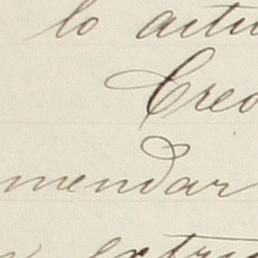 lo actu
Creo
mendar
extra